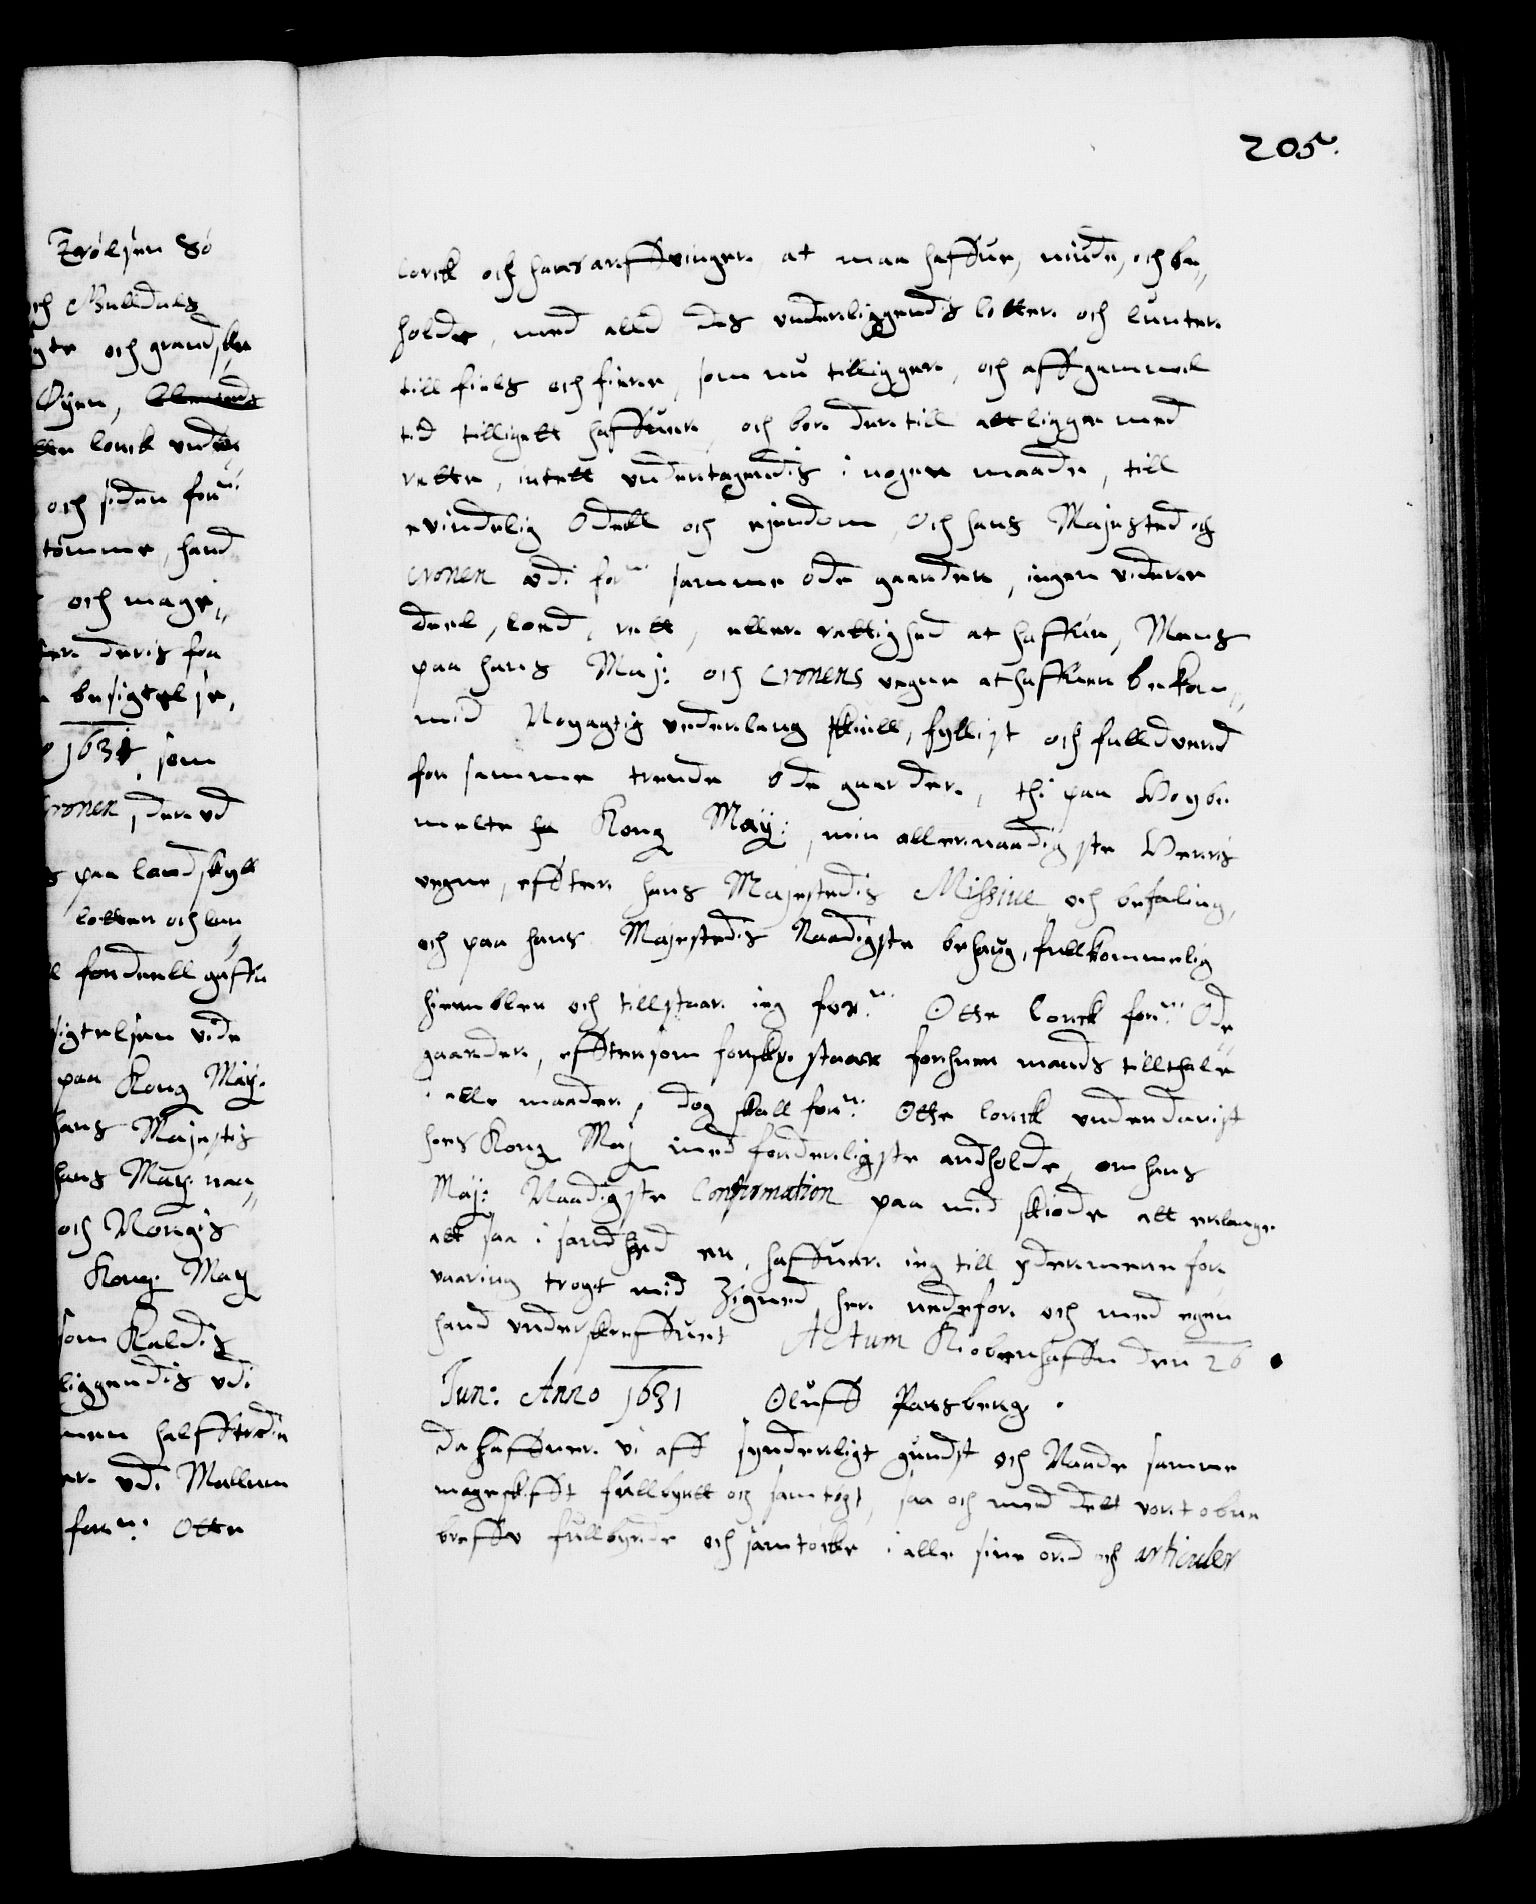 205.
Trölsen Sö
och Bulldals
gte och grandske
Öyen,
tte lorck under
och siden forne:
tömme, hand
och mage,,
er deris fra
besigtelse,
1631, som
Cronen, der ud
s paa landskyll
lotter och lun
fordeell gaffu
sigtelsen vide
paa Kong May.
hans Majestis
hans May. naa,,
och Norgis
Kong. May
som Kaldis
liggendis udi
men halfftredie
er. udi Mallum
forne: Otte
lorck och hans arffvinger. at maa haffue, niude, och be,,
holde, med alld des underliggendis lotter och lunter
till fiels och fiere, som nu tilligger, och aff gammel
tid tilligett haffuer, och bør der till att ligge med
rette, intett undertagendis i nogen maade, till
evindelig Odell och eyendom, Och hans Majested och
Cronen udi forne samme øde gaarder, ingen videre
deel, lod, rett, eller rettighed at haffue, Mens
paa hans Maj: och Cronens vegne at haffuer bekom,,
mid Nøyagtig vederlaug skiell, fyllist och fulldverd
for samme trende øde gaarder, thi paa Høybe
melte Kong May:, min allernaadigste Herris
vegne, effter hans Majestedis Missive och befaling,
och paa hans Majestedis Naadigste behaug, fullkommelig
hiembler och tillstaar ieg forne: Otte lorck forne: Øde,,
gaarder, efftersom forskr. staar forhuer mands tillthale
i alle maader, dog skall forne: Otte lorck underdanigst
hos Kong Maj med forderligste andholde, om hans
Maj: Naadigste Confirmation paa mid skiøde att erlange
att saa i sandhed er, haffuer ieg till ydermere for
vaaring trygt mid Zigned her nedefor. och med egen
hand underskreffuet Actum Kiøbenhaffn den 26
Jun: Anno 1631 Oluff Parsberg.
da haffuer vi aff synderligt gundst och Naade samme
mageskifft fullbyrtt och samtøgt, saa och med dett vort obne
breffv fullbyrde och samtøcke i alle sine ord och articuler